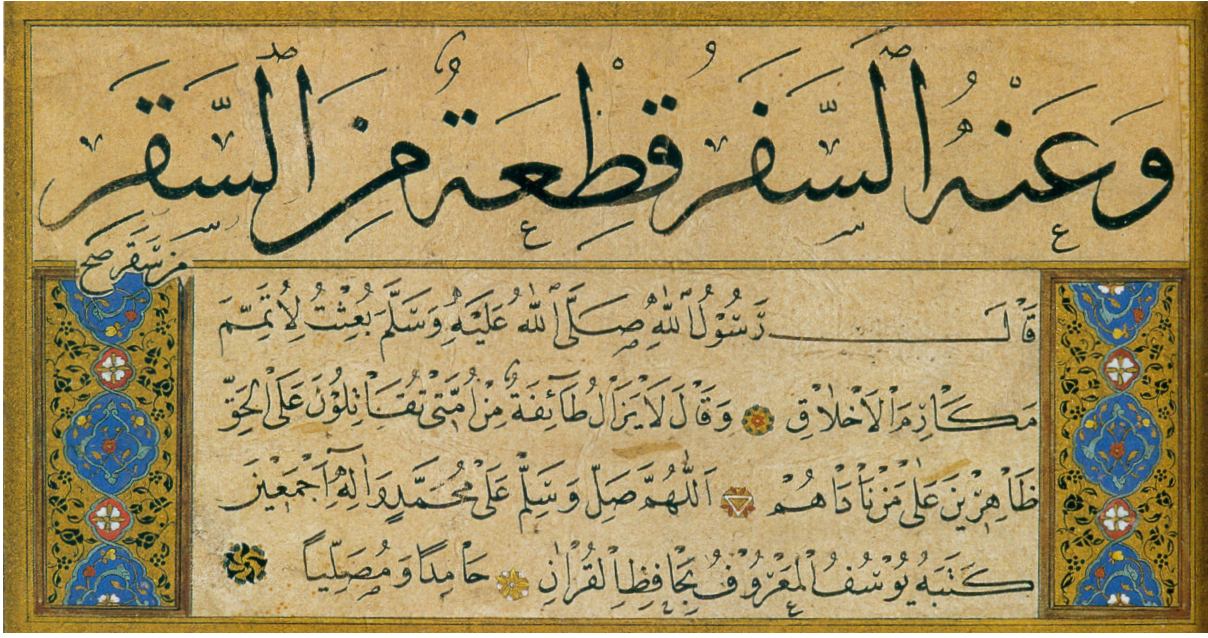 وَعَنْهُ ٱلسَّفَرُ قِطْعَةٌ مِنَ ٱلسَّقَرِ
مِنْ سَقَرَ صح
قَالَ رَسُولُ ٱللّٰهِ صَلَّى ٱللّٰهُ عَلَيْهِ وَسَلَّمَ بُعِثْتُ لِاُتَمِّمَ
مَكَارِمَ الْاَخْلَاقِ وَقَالَ لَا يَزَالُ طَآئِفَةٌ مِنْ اُمَّتِى يُقَاتِلُوْنَ عَلَى الْحَقِّ
ظَاهِرِيْنَ عَلٰى مَنْ نَاْدَاهُمْ اَللّٰهُمَّ صَلِّ وَسَلِّمْ عَلٰى مُحَمَّدٍ وَاٰلِهٖ اَجْمَعِيْنَ
كَتَبَهُ يُوْسُفُ الْمَعْرُوْفُ بِحَافِظِ الْقُرْاٰنِ حَامِدًا وَمُصَلِّيًا